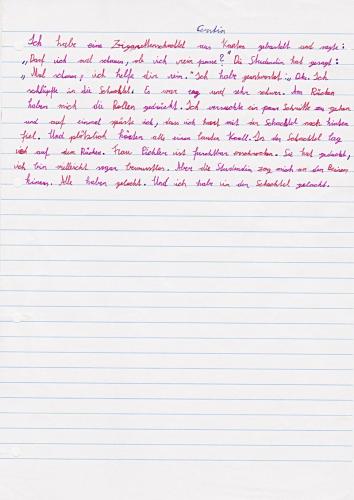 Ich habe eine Zigarettenschachtel aus Karton gebastelt und sagte:
„Darf ich mal schauen, ob ich rein passe?" Die Studentin hat gesagt:
„Mal schauen, ich helfe dir rein." Ich habe geantwortet: „Oke. Ich
schlüpfte in die Schachtel. Es war eng und sehr schwer. Am Rücken
haben mich die Rollen gedrückt. Ich versuchte ein paar Schritte zu gehen
und auf einmal spürte ich, dass ich samt mit der Schachtel nach hinten
fiel. Und plötzlich hörten alle einen lauten Knall. In der Schachtel lag
ich auf dem Rücken. Frau Pichler ist furchtbar erschrocken. Sie hat gedacht,
ich bin vielleicht sogar bewusstlos. Aber die Studentin zog mich an den Beinen
heraus. Alle haben gelacht. Und ich habe in der Schachtel gelacht.